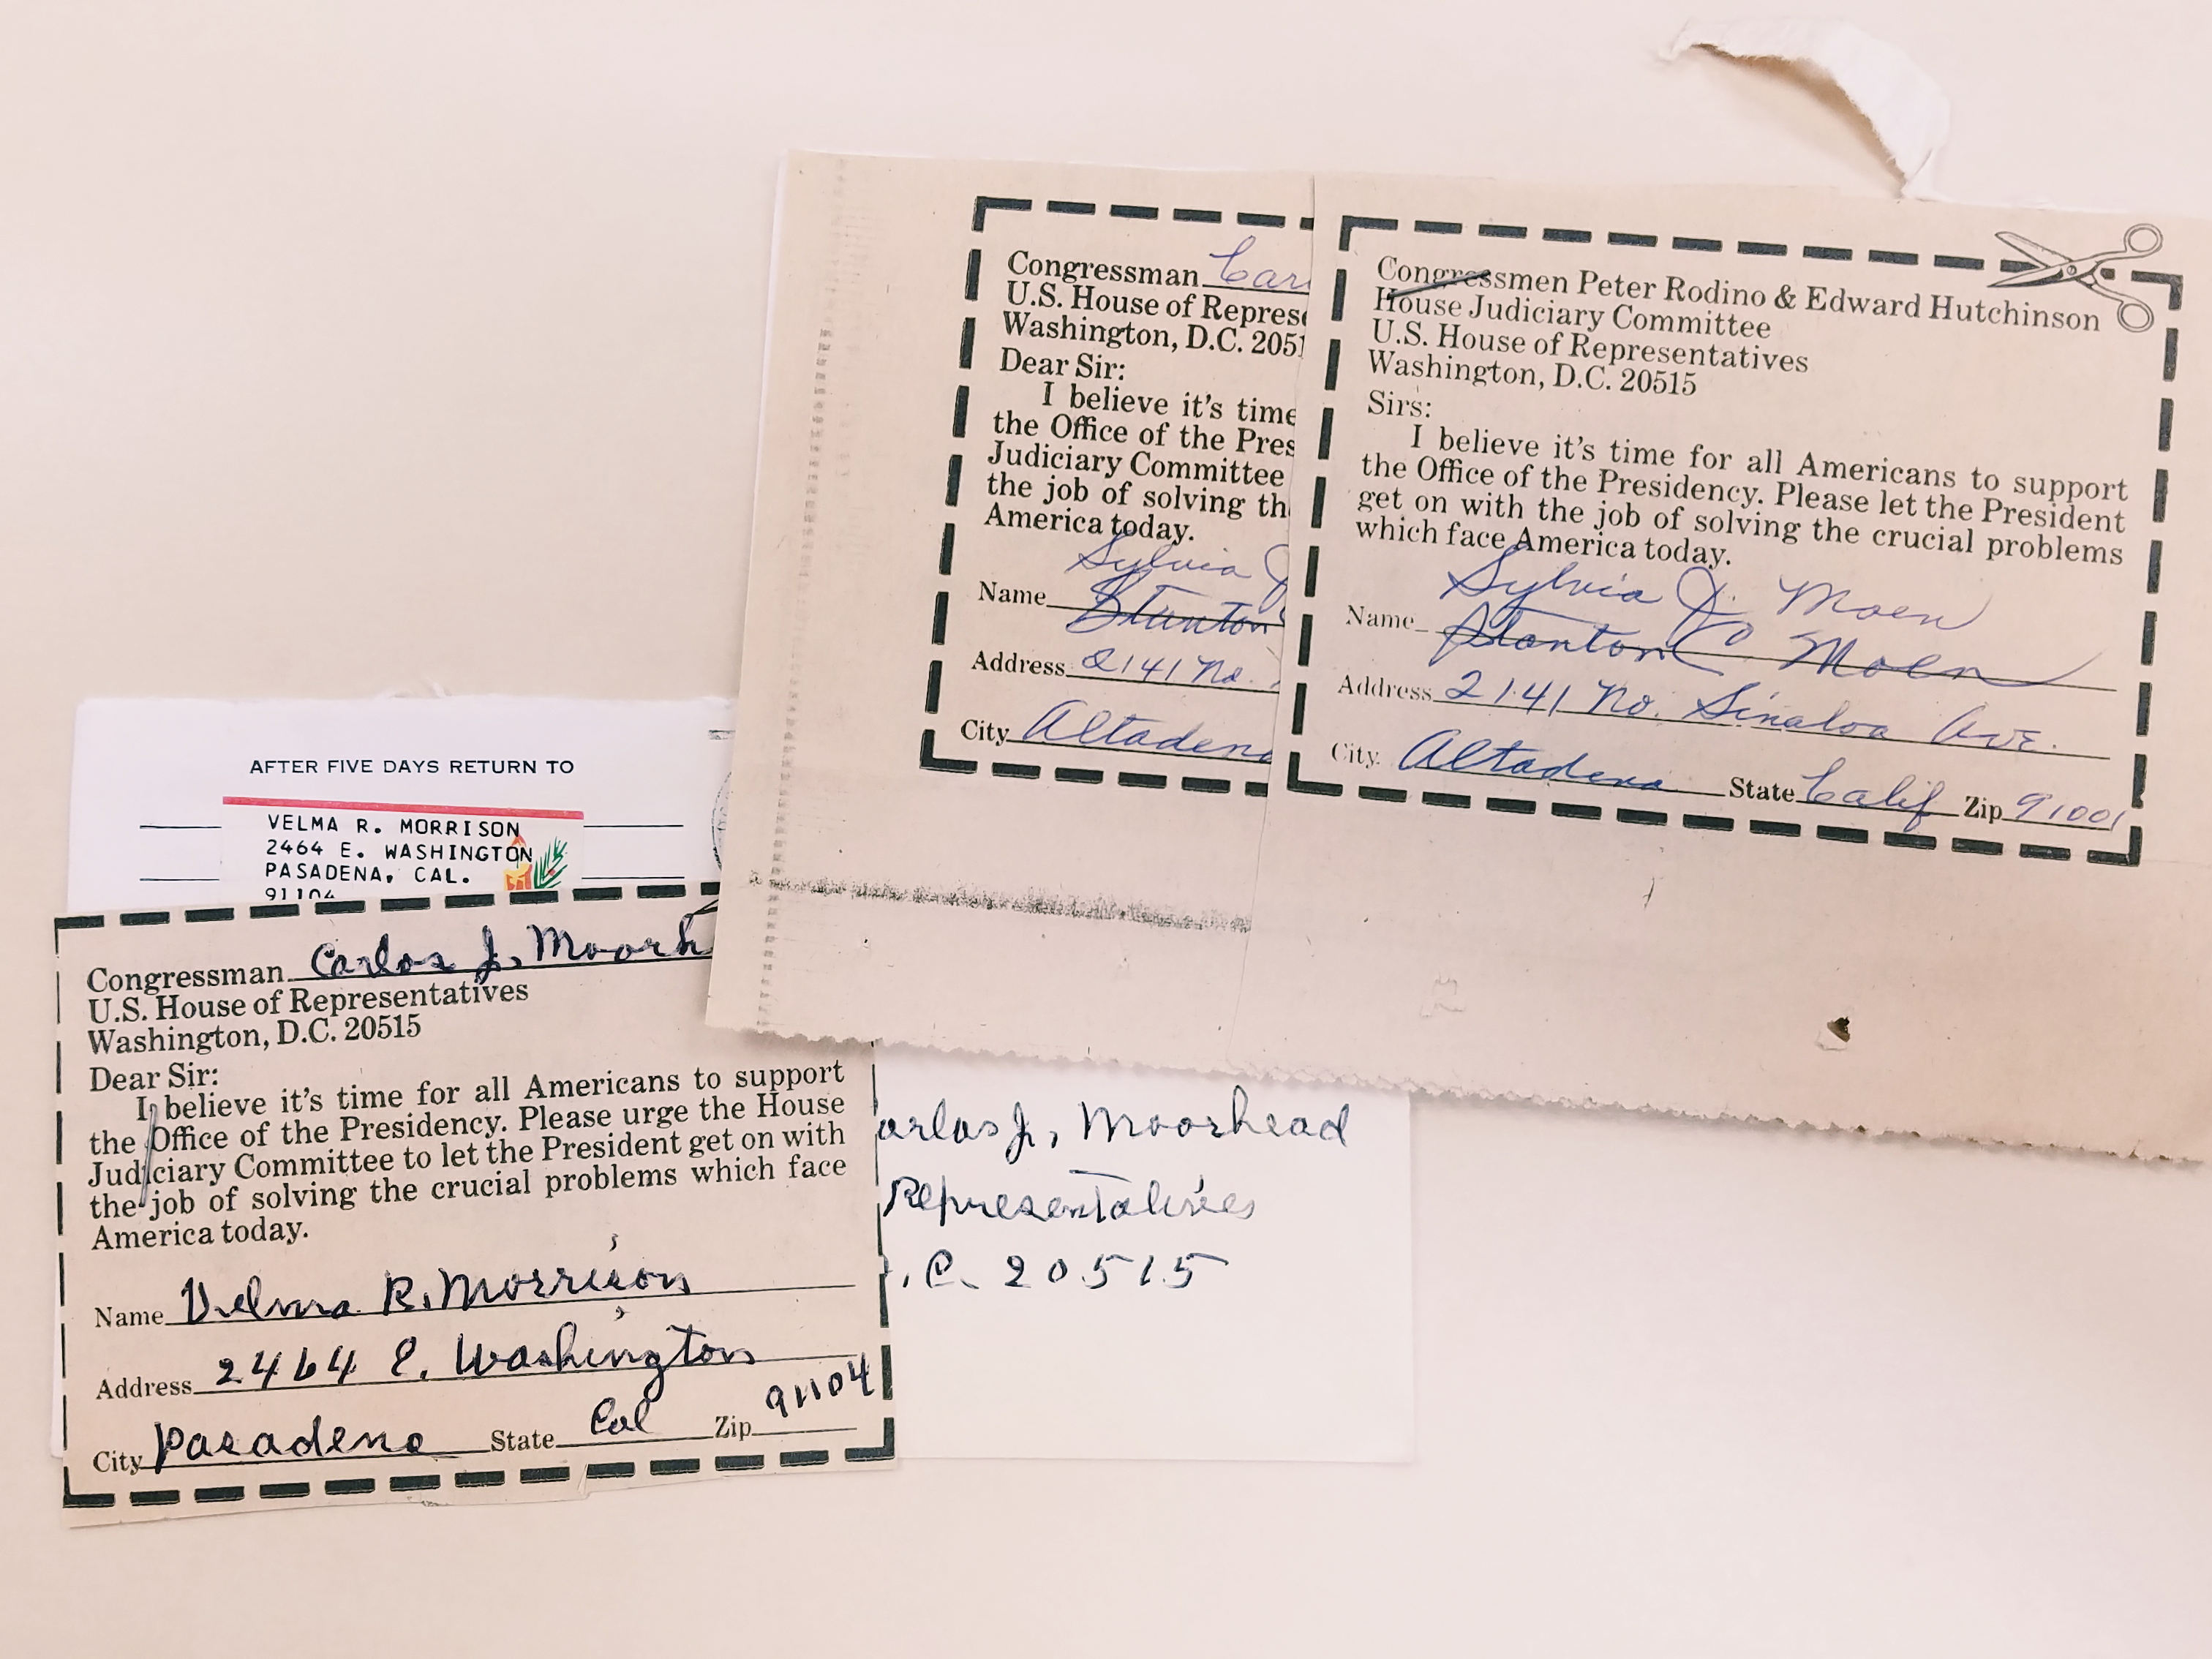 AFTER FIVE DAYS RETURN TO
VELMA R. MORRISON
2464 E. WASHINGTON
PASADENA, CAL.
91104
Congressman Carlos J. Moorh
U.S. House of Representatives
Washington, D.C. 20515
Dear Sir:
I believe it's time for all Americans to support
the Office of the Presidency. Please urge the House
Judiciary Committee to let the President get on with
the job of solving the crucial problems which face
America today.
Name Velma R. Morrison
Address 2464 E. Washington
City Pasadena State Cal Zip 91104
arlos J. Moorhead
Representatives
. C. 20515
Congressman Car
U.S. House of Repres
Washington, D.C. 2051
Dear Sir:
I believe it's time
the Office of the Pres
Judiciary Committee
the job of solving th
America today.
Sylvia J
Name Stanton
Address 2141 No.
City Altadena
Congressmen Peter Rodino & Edward Hutchinson
House Judiciary Committee
U.S. House of Representatives
Washington, D.C. 20515
Sirs:
I believe it's time for all Americans to support
the Office of the Presidency. Please let the President
get on with the job of solving the crucial problems
which face America today.
Sylvia J. Moen
Name Stanton C. Moen
Address 2141 No. Sinaloa Ave.
City Altadena State Calif Zip 91001